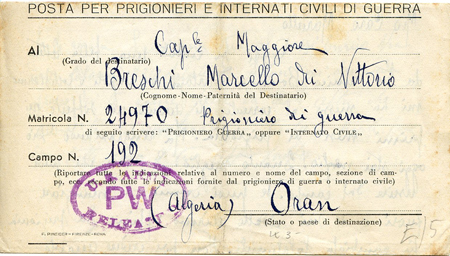 POSTA PER PRIGIONIERI E INTERNATI CIVILI DI GUERRA
Al Cap.le Maggiore
(Grado del destinatario)
Breschi Marcello di Vittorio
(Cognome-Nome-Paternità del Destinatario)
Matricola N. 24970 Prigioniero di guerra
di seguito scrivere: "PRIGIONIERO GUERRA", oppure "INTERNATO CIVILE"
Campo N. 192
(Riportare tutte le indicazioni relative al numero e nome del campo, sezione di cam-
po, ecc. secondo tutte le indicazioni fornite dal prigioniero di guerra o internato civile)
PW
RELEASE
(Algeria) Oran
(Stato o paese di destinazione)
E/5